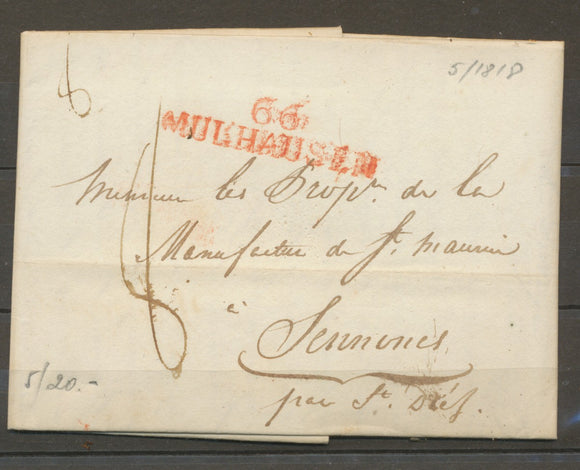 5/1818
66
MULHAUSEN
les Prop.re de la
Manufacture de St. Maurice
à
Sennones
par St. Diéz.
5/20.-